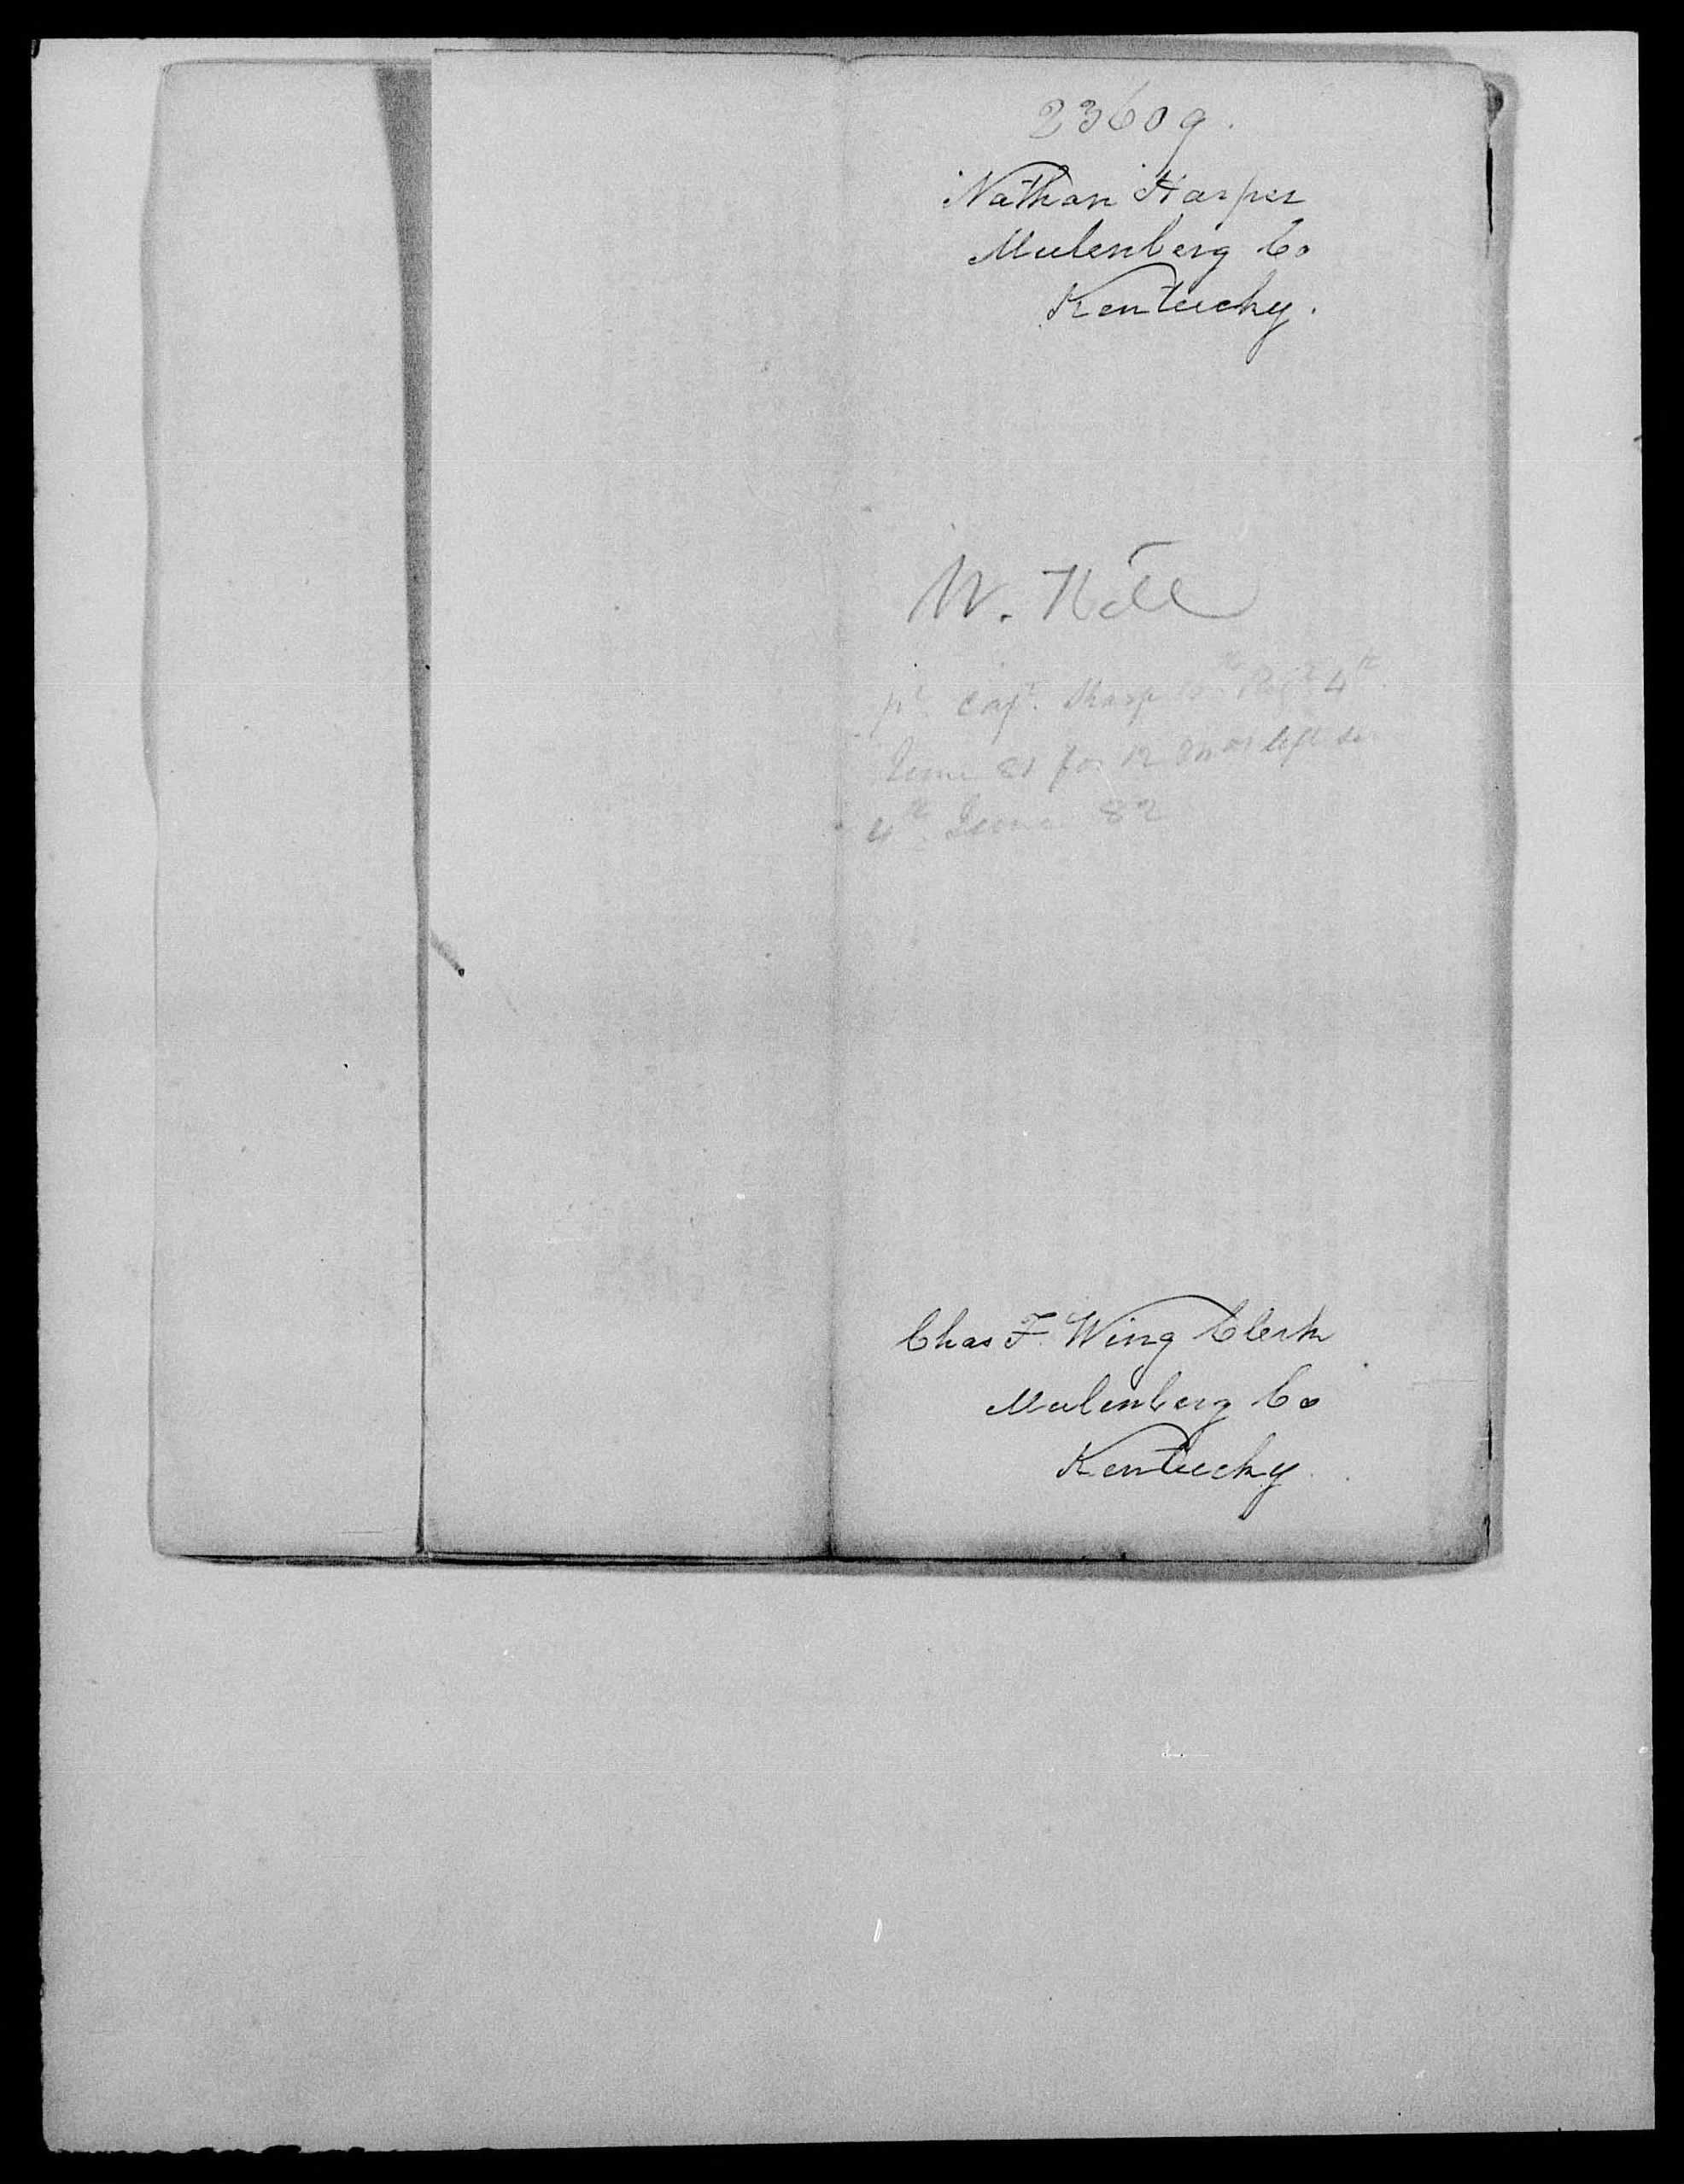 23609.
Nathan Harper
Mulenberg Co
Kentucky.
W.
pt. Capt. Sharp Regt 4th
June 81 for 12 Mos left
4th June 82
Chas F. Wing Clerk
Mulenberg Co
Kentucky